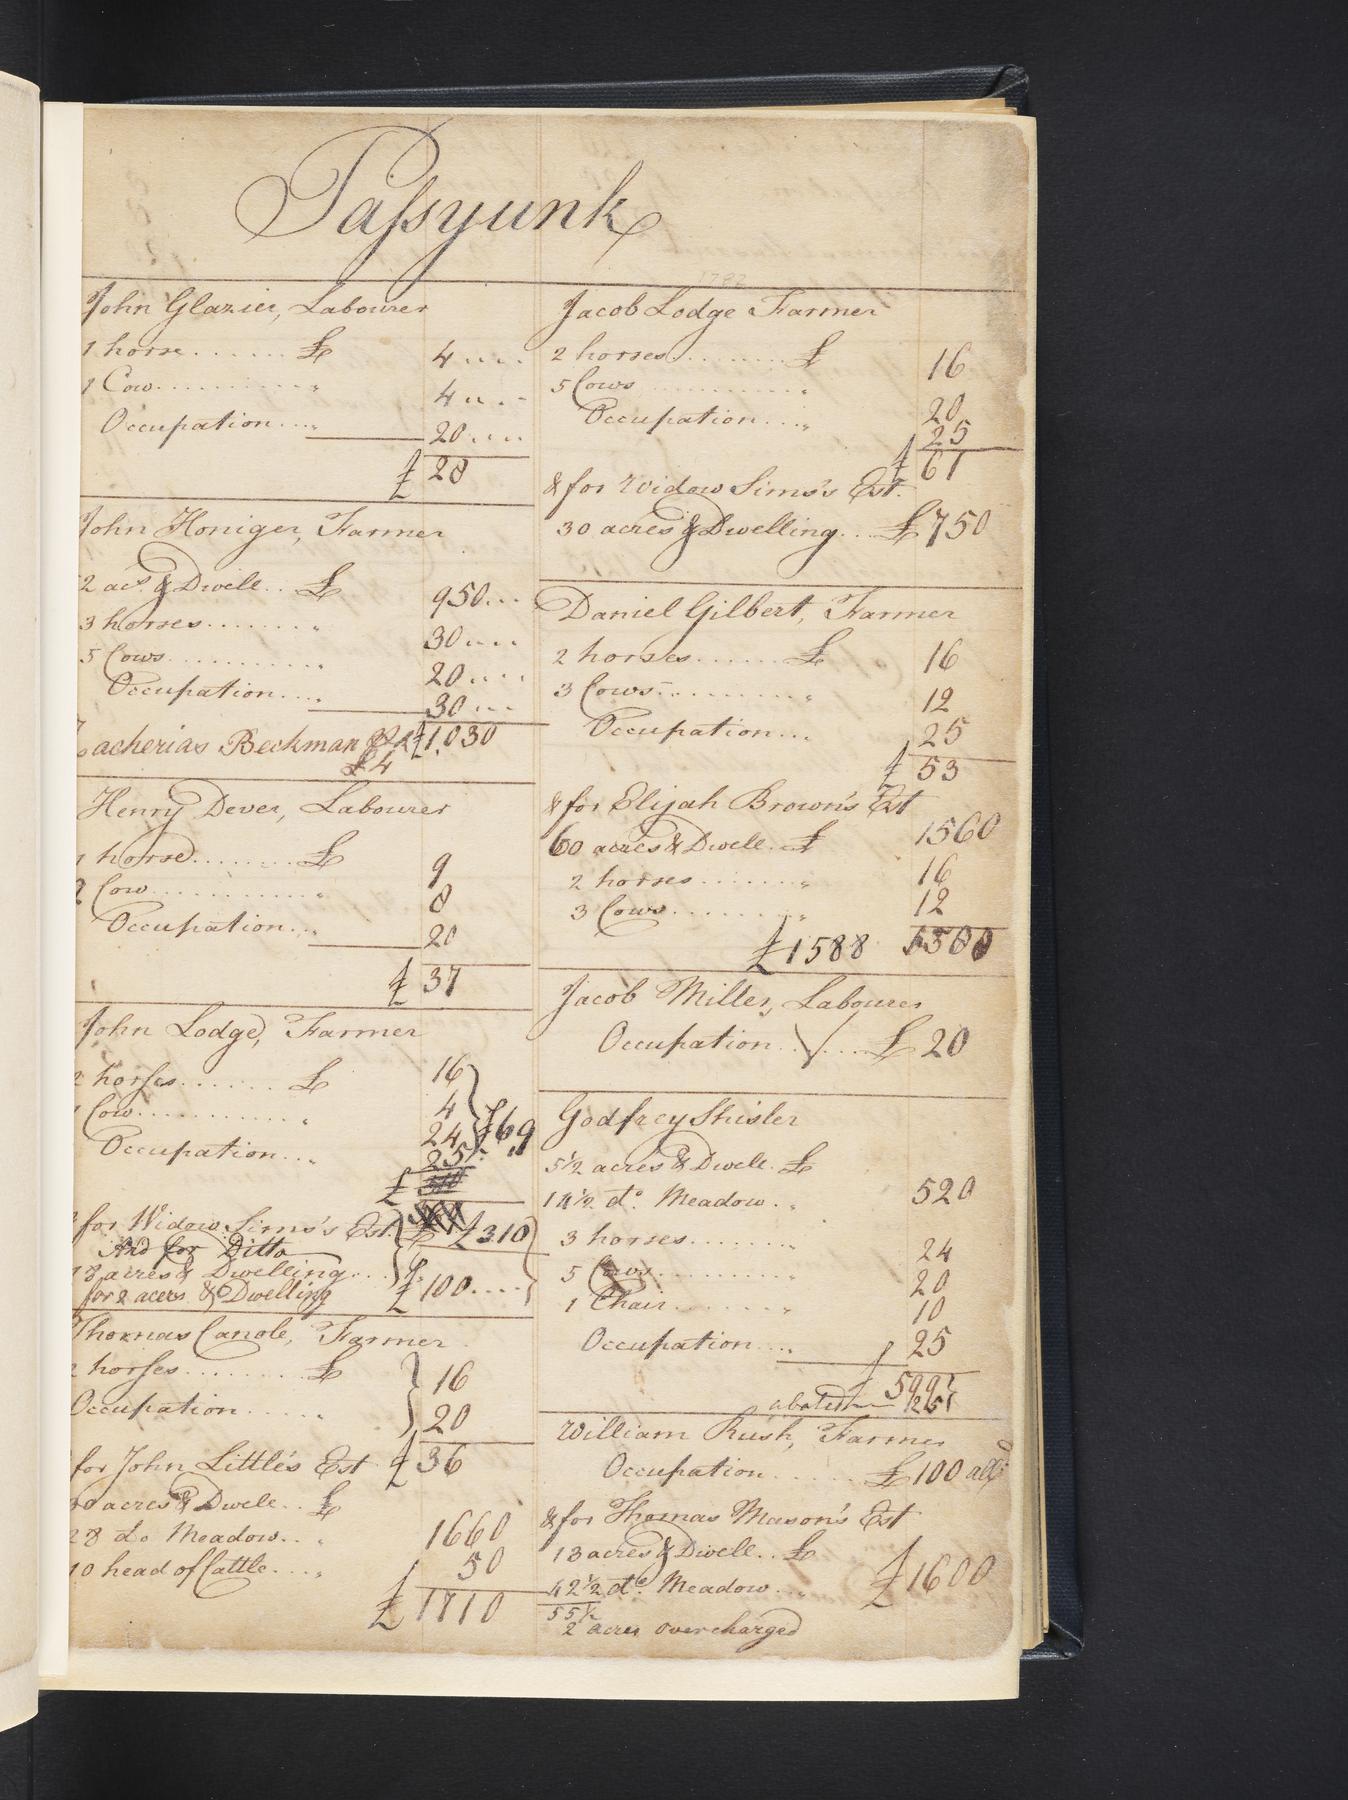 Passyunk
1782
John Glazier, Labourer
1 horse £ 4
1 Cow 4
Occupation 20
£ 28
John Honiger, Farmer
2 acs. & Dwell. £ 950
3 horses 30
5 Cows 20
Occupation 30
£1,030
Zacherias Beckman
£4
Henry Dever, Labourer
1 horse £ 9
2 Cow 8
Occupation 20
£ 37
John Lodge, Farmer
2 horses £ 16
1 Cow 4
24
Occupation 25
£69
£
& for Widow Sims's Est. £310
And for Ditto
18 acres & Dwelling
for 2 acers & Dwelling £ 100
Thomas Canole, Farmer
2 horses £ 16
Occupation 20
£ 36
& for John Little's Est
30 acres & Dwell. £
28 do Meadow 1660
10 head of Cattle 50
£ 1710
Jacob Lodge Farmer
2 horses £ 16
5 Cows 20
Occupation 25
£ 61
& for Widow Sims's Est.
30 acres & Dwelling £750
Daniel Gilbert, Farmer
2 horses £ 16
3 Cows 12
Occupation 25
£ 53
& for Elijah Brown's Est
60 acres & Dwell. £ 1560
2 horses 16
3 Cows 12
£1588
Jacob Miller, Labourer
Occupation £ 20
Godfrey Shisler
5 1/2 acres & Dwell. £
14 1/2 do. Meadow 520
3 horses 24
5 Cows 20
1 Chair 10
Occupation 25
£ 599
abated
William Rush, Farmer
Occupation £100
& for Thomas Mason's Est
13 acres & Dwell. £
42 1/2 do. Meadow £1600
55 1/2
2 acres overcharged